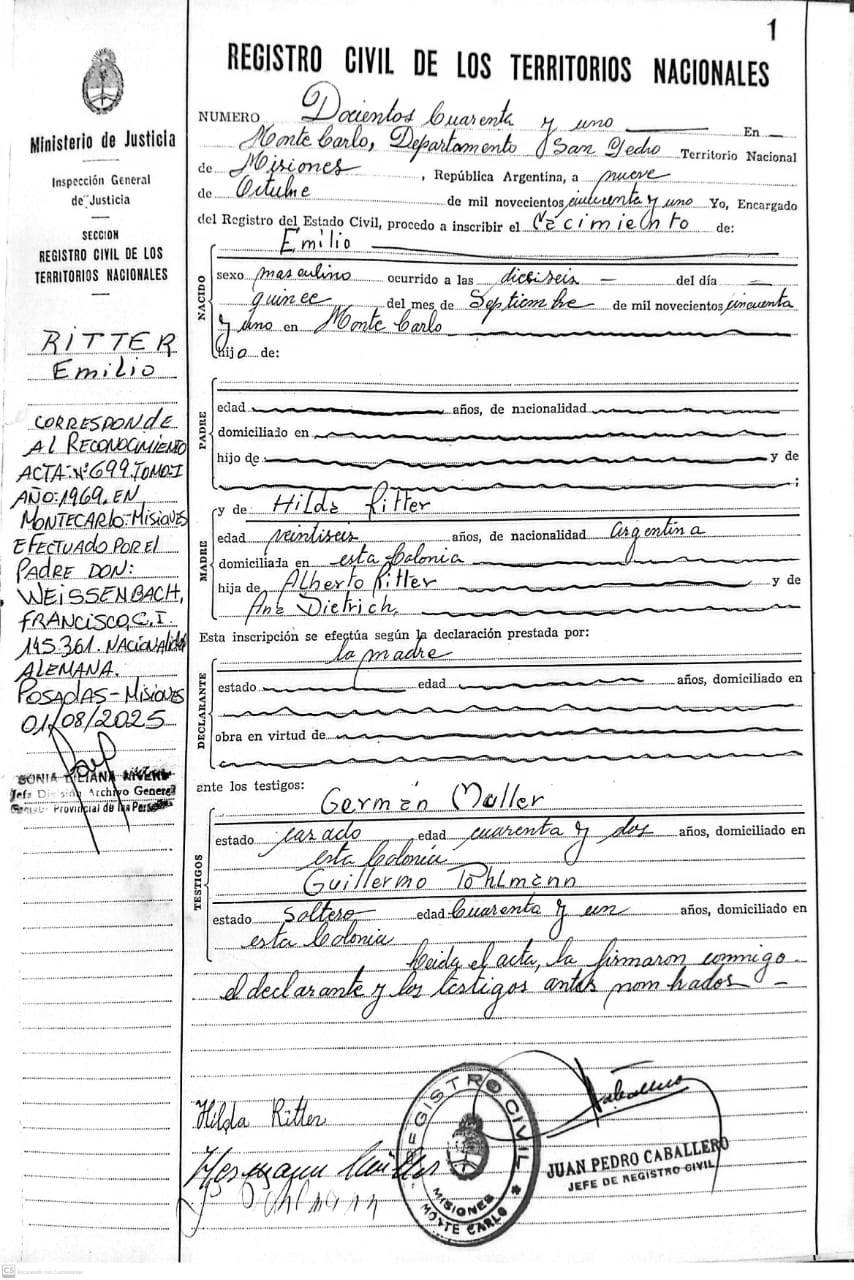 1
REGISTRO CIVIL DE LOS TERRITORIOS NACIONALES
Ministerio de Justicia
Inspección General
de Justicia
SECCION
REGISTRO CIVIL DE LOS
TERRITORIOS NACIONALES
RITTER
Emilio
CORRESPONDE
Al RECONOCIMIENTO
ACTA: Nº 699. TOMO: I
AÑO: 1969. EN
MONTECARLO-Misiones
EFECTUADO POR El
PADRE DON:
WEISSENBACH,
FRANCISCO, C.I.
145.361. NACIONALIDAD
ALEMANA.
POSADAS-MISIONES
01/08/2025
SONIA LILIANA
Jefa División Archivo General
Provincial de las Personas
NUMERO Docientos Cuarenta y uno En
Monte Carlo, Departamento San Pedro Territorio Nacional
de Misiones, República Argentina, a nueve
de Octubre de mil novecientos cincuenta y uno Yo, Encargado
del Registro del Estado Civil, procedo a inscribir el Nacimiento de:
NACIDO
Emilio
sexo masculino ocurrido a las dieciseis del día
quince del mes de Septiembre de mil novecientos cincuenta
y uno en Monte Carlo
hijo de:
PADRE
edad años, de nacionalidad
domiciliado en
hijo de y de
;
MADRE
y de Hilda Ritter
edad veintiseis años, de nacionalidad Argentina
domiciliada en esta Colonia
hija de Alberto Ritter y de
Ana Dietrich.
Esta inscripción se efectúa según la declaración prestada por:
DECLARANTE
la madre
estado edad años, domiciliado en
obra en virtud de
ante los testigos:
TESTIGOS
Germán Muller
estado casado edad cuarenta y dos años, domiciliado en
esta Colonia
Guillermo Pohlmann
estado Soltero edad Cuarenta y un años, domiciliado en
esta Colonia
Leida el acta, la firmaron conmigo
el declarante y los testigos antes nombrados
Hilda Ritter
Hermann Müller
Pohlmann
REGISTRO CIVIL
MISIONES
MONTE CARLO
JUAN PEDRO CABALLERO
JEFE DE REGISTRO CIVIL
CS